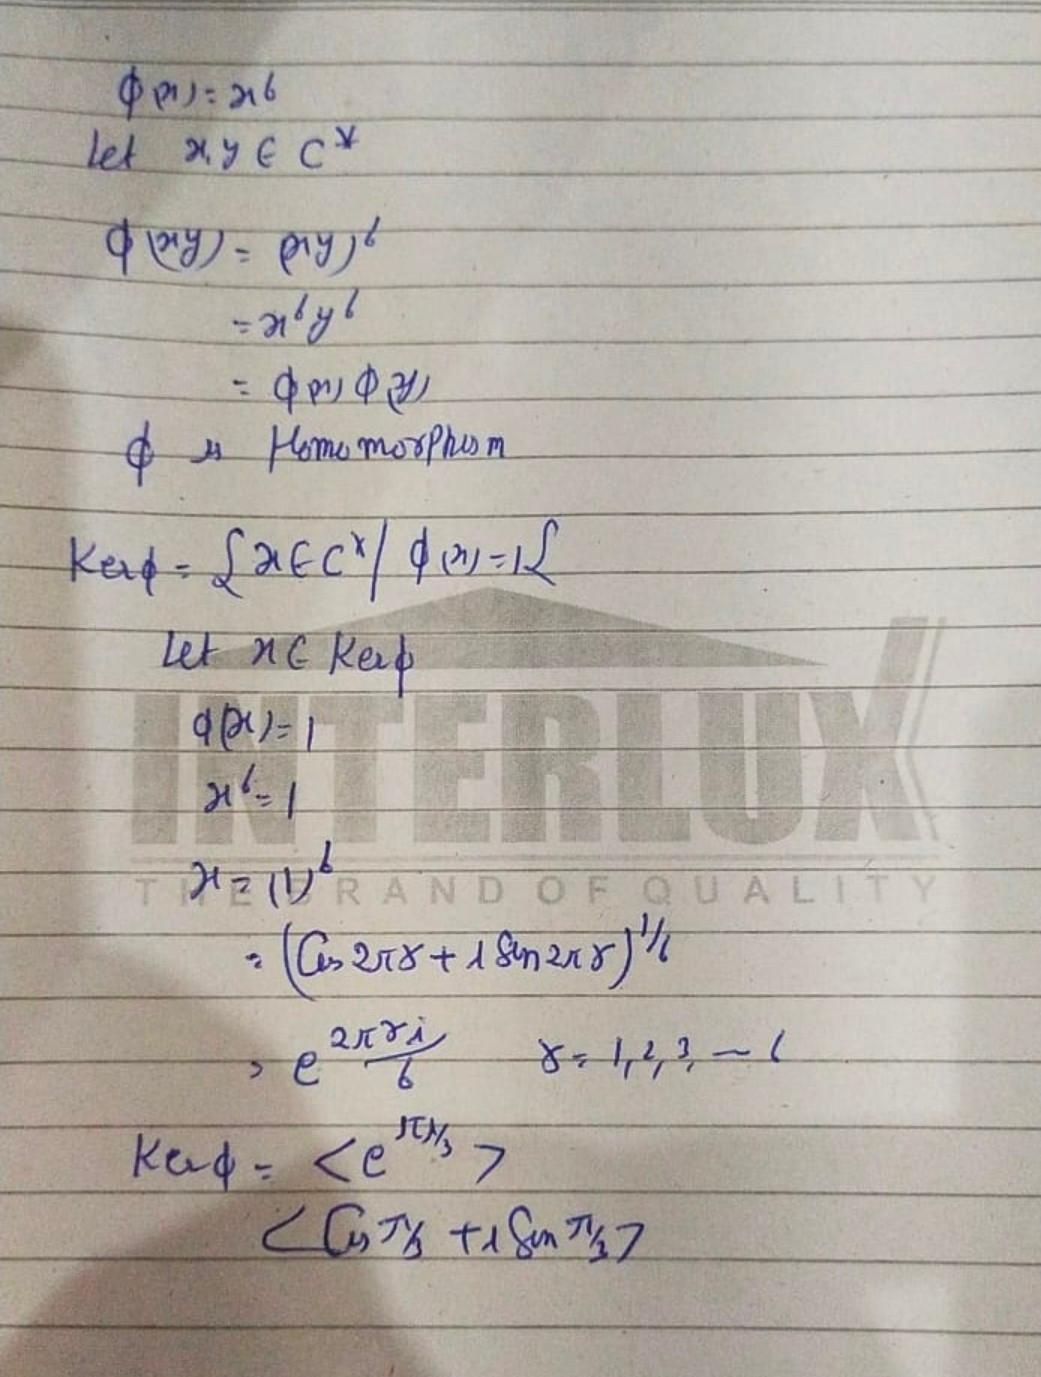 ϕ(x) = x⁶
Let x, y ∈ C*
ϕ(xy) = (xy)⁶
= x⁶y⁶
= ϕ(x) ϕ(y)
ϕ is Homomorphism
Kerϕ = {x ∈ C* / ϕ(x) = 1}
Let x ∈ Kerϕ
ϕ(x) = 1
x⁶ = 1
x = (1)⁶
= (Cos 2πr + i Sin 2πr)^1/6
= e^(2πri/6) r = 1, 2, 3, — 6
Kerϕ = <e^(πi/3)>
<Cos π/3 + i Sin π/3>
INTERLUX
THE BRAND OF QUALITY